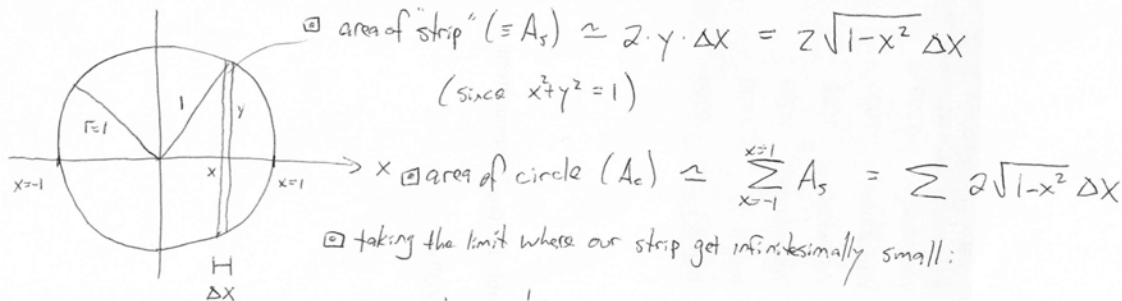 ⊡ area of "strip" (≡ A_s) ≃ 2·y·ΔX = 2√(1-x²) ΔX
(since x²+y² = 1)
1
y
r=1
x
x=-1
x=1
x
⊡ area of circle (A_c) ≃ ∑_{x=-1}^{x=1} A_s = ∑ 2√(1-x²) ΔX
⊡ taking the limit where our strip get infinitesimally small:
ΔX